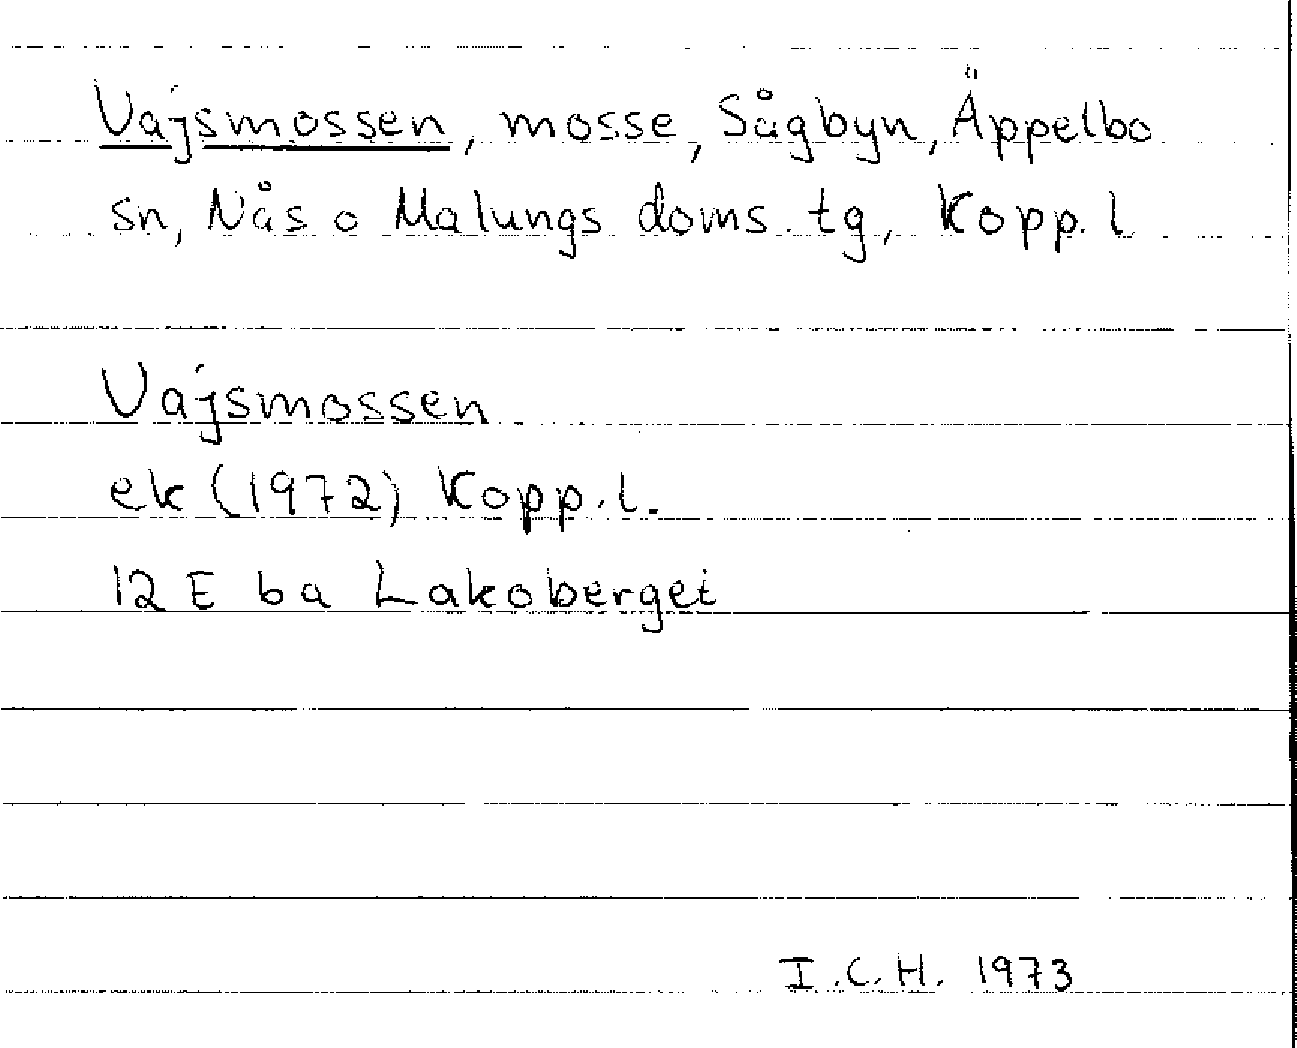 Vajsmossen, mosse, Sågbyn, Äppelbo
sn, Nås o Malungs doms. tg, Kopp. l
Vajsmossen
ek (1972) Kopp. l.
12 E ba Lakoberget
I.C.H. 1973